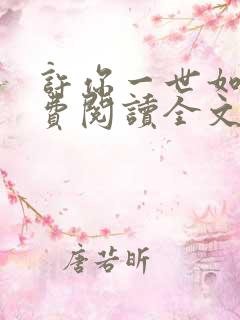 許你一世如
費閱讀全文
唐若昕